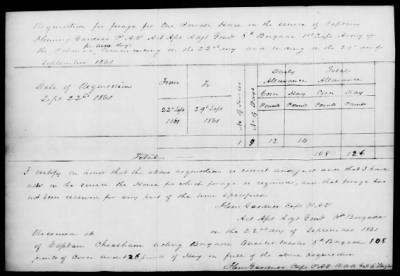 Requisition for forage for One Private Horse in the service of Captain
Fleming Gardner P.A.C.S. Act Apt Adjt Genl 5th Brigade 1st Corps Army of
the Potomac for seven days commencing on the 22nd day and ending on the 29th day of
September 1861
Date of Requisition
Sept 22nd 1861
From
To
22nd Sept 1861
29th Sept 1861
No of Horses
No of Days
Daily Allowance
Total Allowance
Corn
Hay
Corn
Hay
Pounds
Pounds
Pounds
Pounds
1
9
12
14
Total
108
126
I certify on honor that the above requisition is correct and just and that I have
now in the service the Horse for which forage is required, and that forage has
not been received for any part of the time specified
Flem Gardner Capt P.A.C.S.
Act Apt Adjt Genl 5th Brigade
Received at on the 22nd day of September 1861
of Captain Cheatham Acting Brigade Quarter Master 5th Brigade 108
pounds of Corn and 126 pounds of Hay in full of the above requisition
Flem Gardner Capt P.A.C.S.